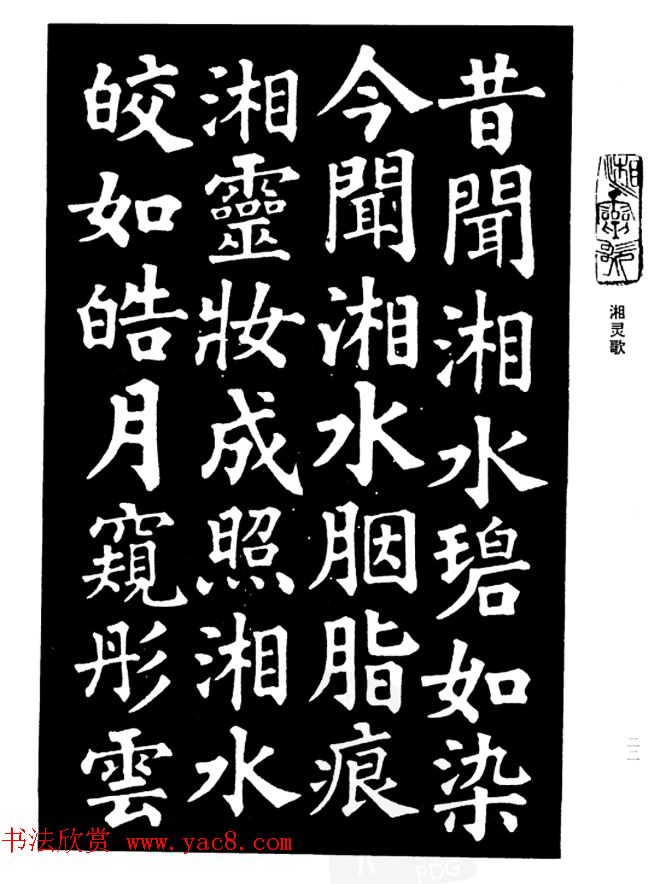 昔聞湘水碧如染
今聞湘水胭脂痕
湘靈妝成照湘水
皎如皓月窺彤雲
湘靈歌
湘灵歌
二二
书法欣赏 www.yac8.com
PDG